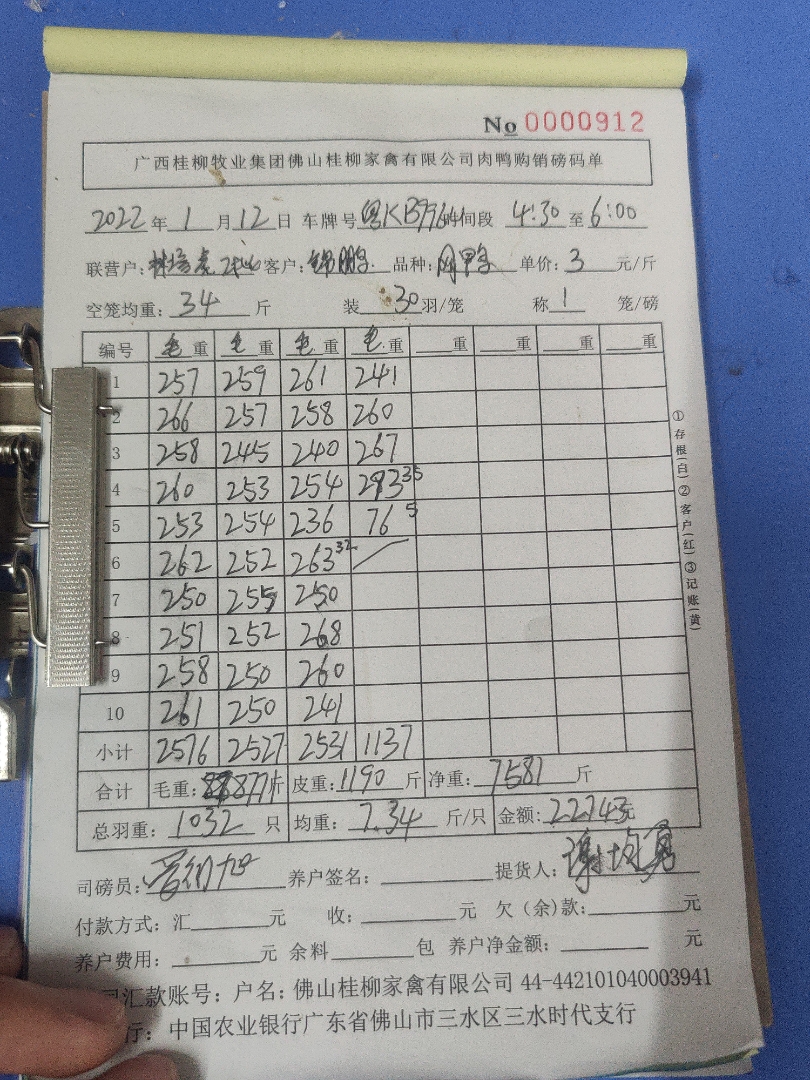 No 0000912
广西桂柳牧业集团佛山桂柳家禽有限公司肉鸭购销磅码单
2022年1月12日 车牌号 粤KB9964 时间段 4:30至6:00
联营户: 客户: 锦鹏 品种: 单价: 3 元/斤
空笼均重: 34 斤 装 30 羽/笼 称 1 笼/磅
编号 毛重 毛重 毛重 毛重 重 重 重 重
1 257 259 261 241
2 266 257 258 260
3 258 245 240 267
4 260 253 254 293 35
5 253 254 236 76 5
6 262 252 263 32
7 250 255 250
8 251 252 268
9 258 250 260
10 261 250 241
小计 2576 2527 2531 1137
合计 毛重: 8771斤 皮重: 1190斤 净重: 7581斤
总羽重: 1032只 均重: 7.34斤/只 金额: 22743元
司磅员: 养户签名: 提货人: 谢均勇
付款方式: 汇 元 收: 元 欠(余)款: 元
养户费用: 元 余料 包 养户净金额: 元
汇款账号: 户名: 佛山桂柳家禽有限公司 44-442101040003941
行: 中国农业银行广东省佛山市三水区三水时代支行
①存根(白)②客户(红)③记账(黄)